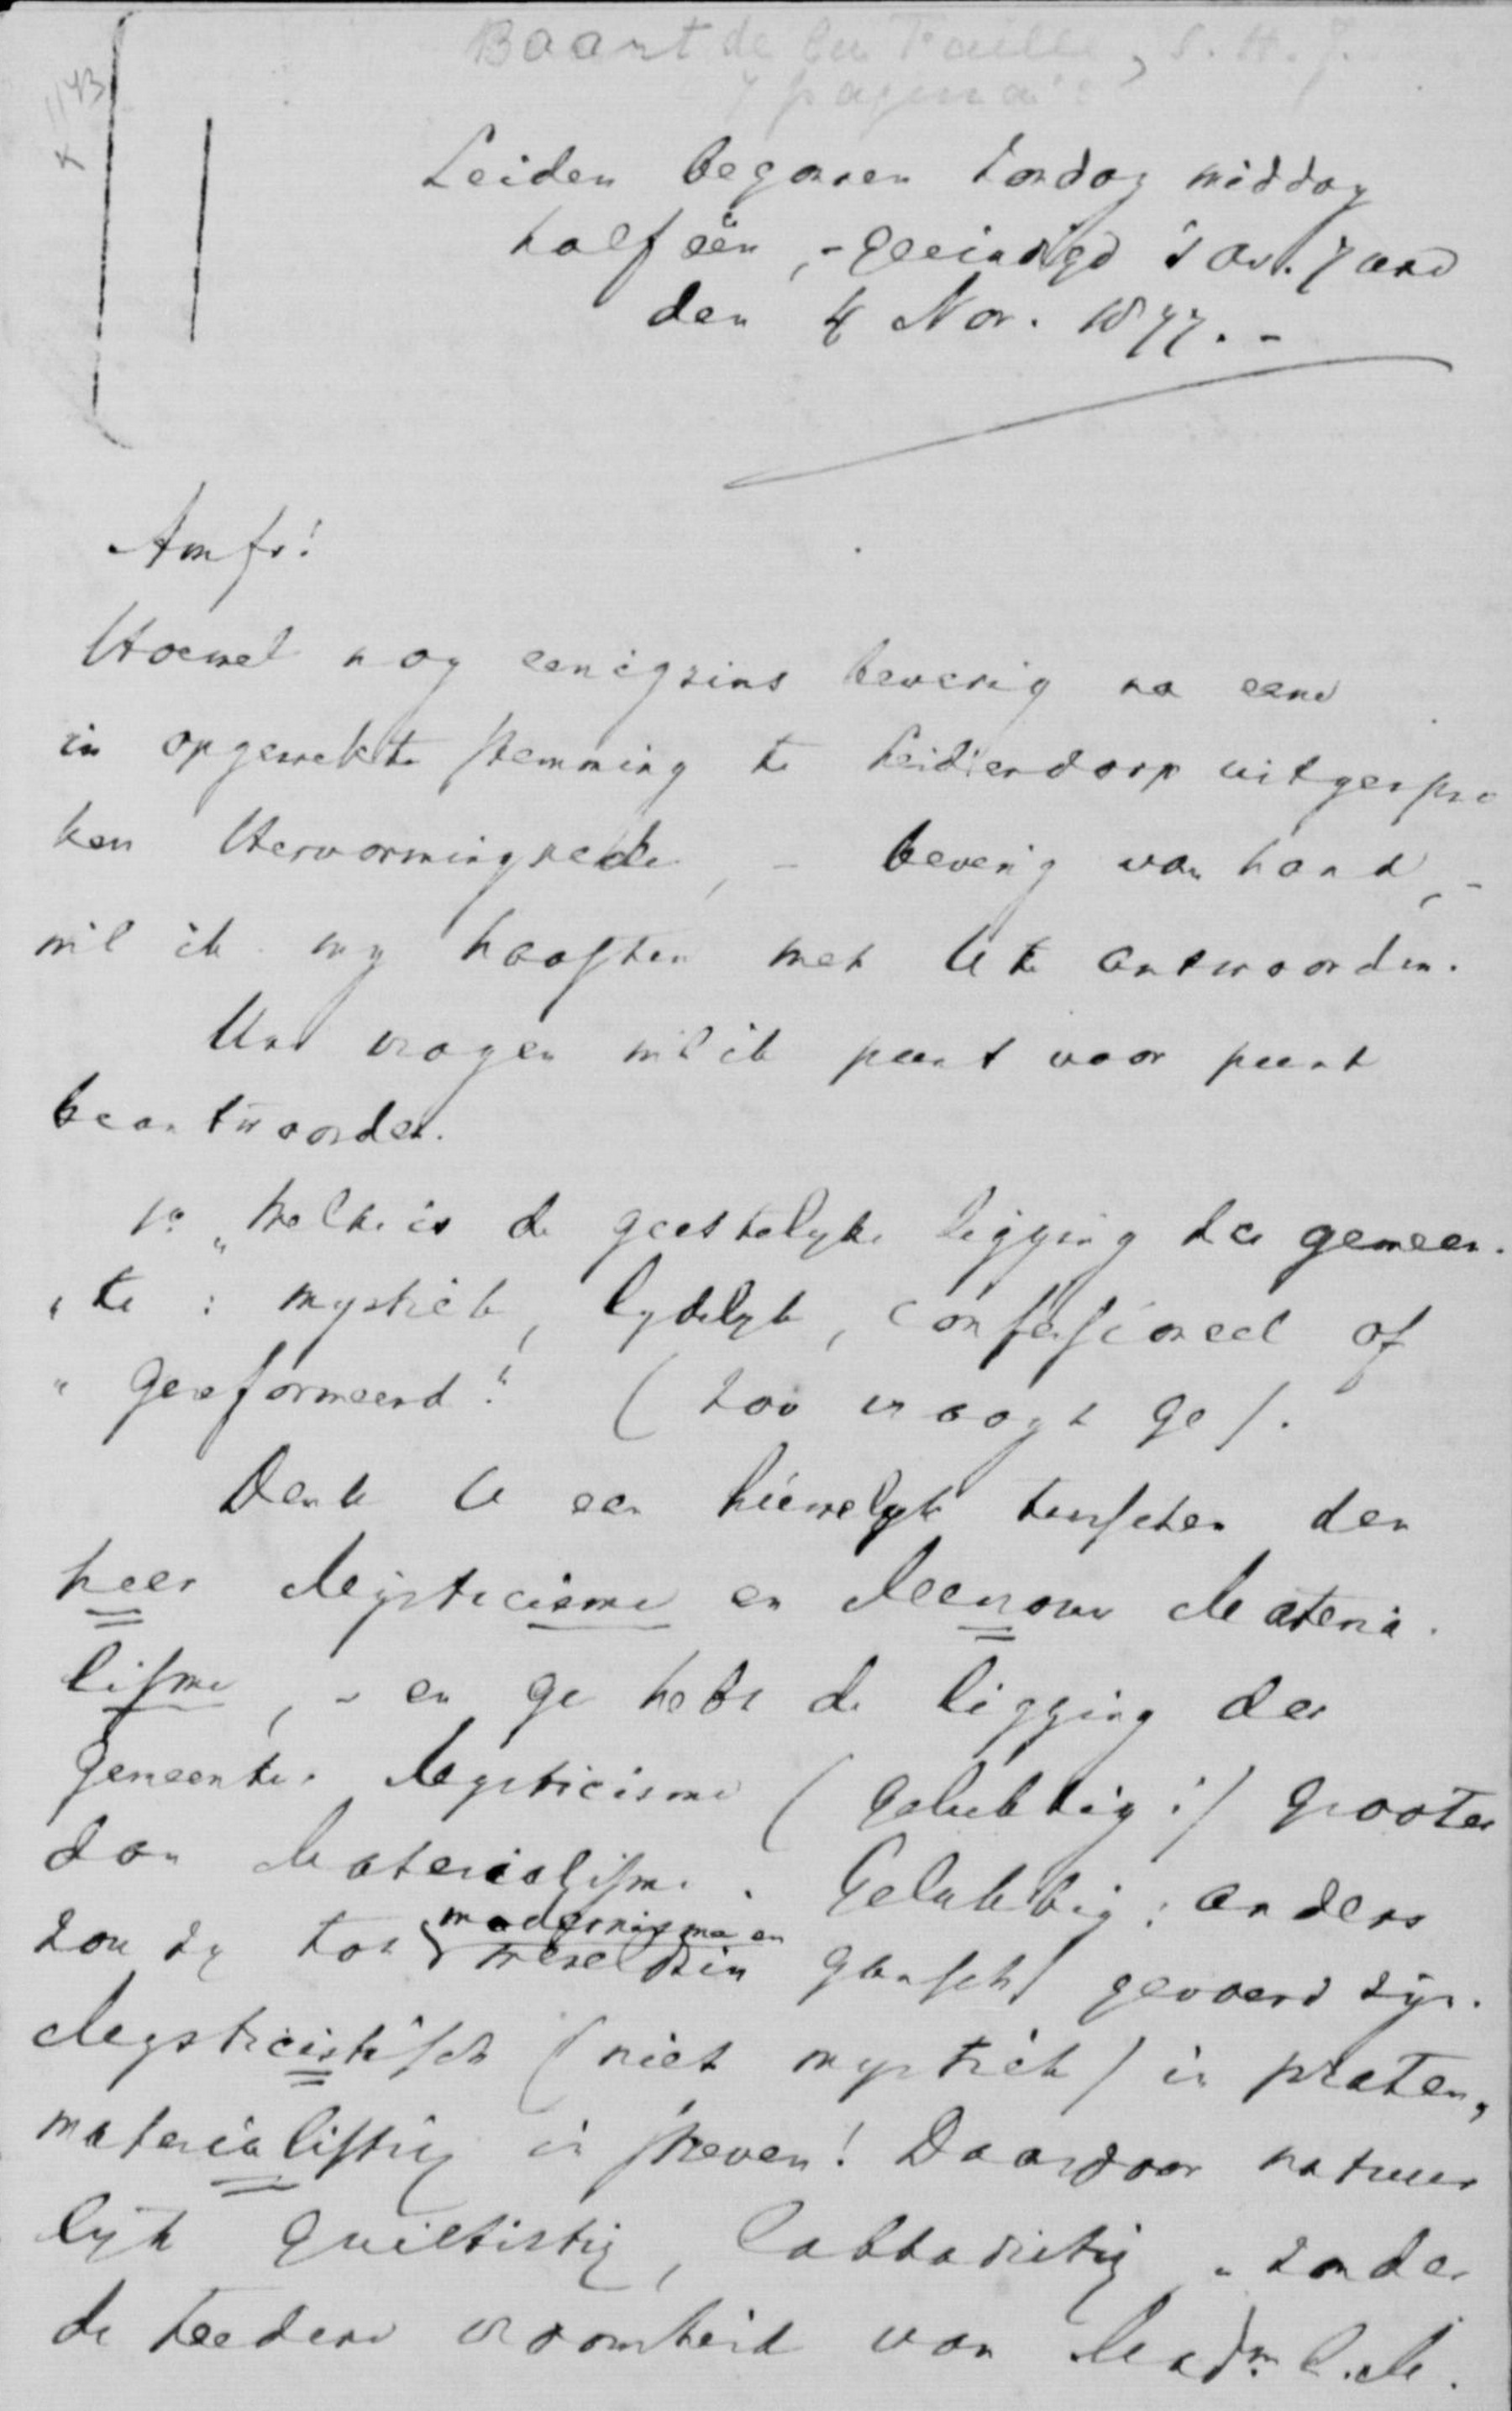 Baart de la Faille, S. H. J.
7 pagina's
K 1143
Leiden begonnen Zondag middag
half één, - geeindigd 's av. 7 ure
den 4 Nov. 1877. -
Am fr!
Hoewel nog eenigzins beverig na eene
in opgewekte stemming te Leiderdorp uitgespro
ken Hervormingrede, - beverig van hand, -
wil ik my haasten met U te antwoorden.
Uwe vragen wil ik punt voor punt
beantwoorden.
1o "Welke is de geestelyke ligging der gemeen-
" te : mystiek, lydelyk, confessioneel of
" Gereformeerd" (zoo vraagt ge).
Denk U een huwelyk tusschen den
heer Mysticisme en Mevrouw Materia-
lisme, - en ge hebt de ligging der
gemeente. Mysticisme (gelukkig!) grooter
dan Materialisme. Gelukkig: anders
modernisme en
zou zy tot wereldzin gansch gevoerd zijn.
Mysticistisch (niet mystiek) in praten,
materialistisch in streven! Daardoor natuur
lyk quiëtistisch, labbadistisch, zonder
de teedere vroomheid van Madm. l. M.